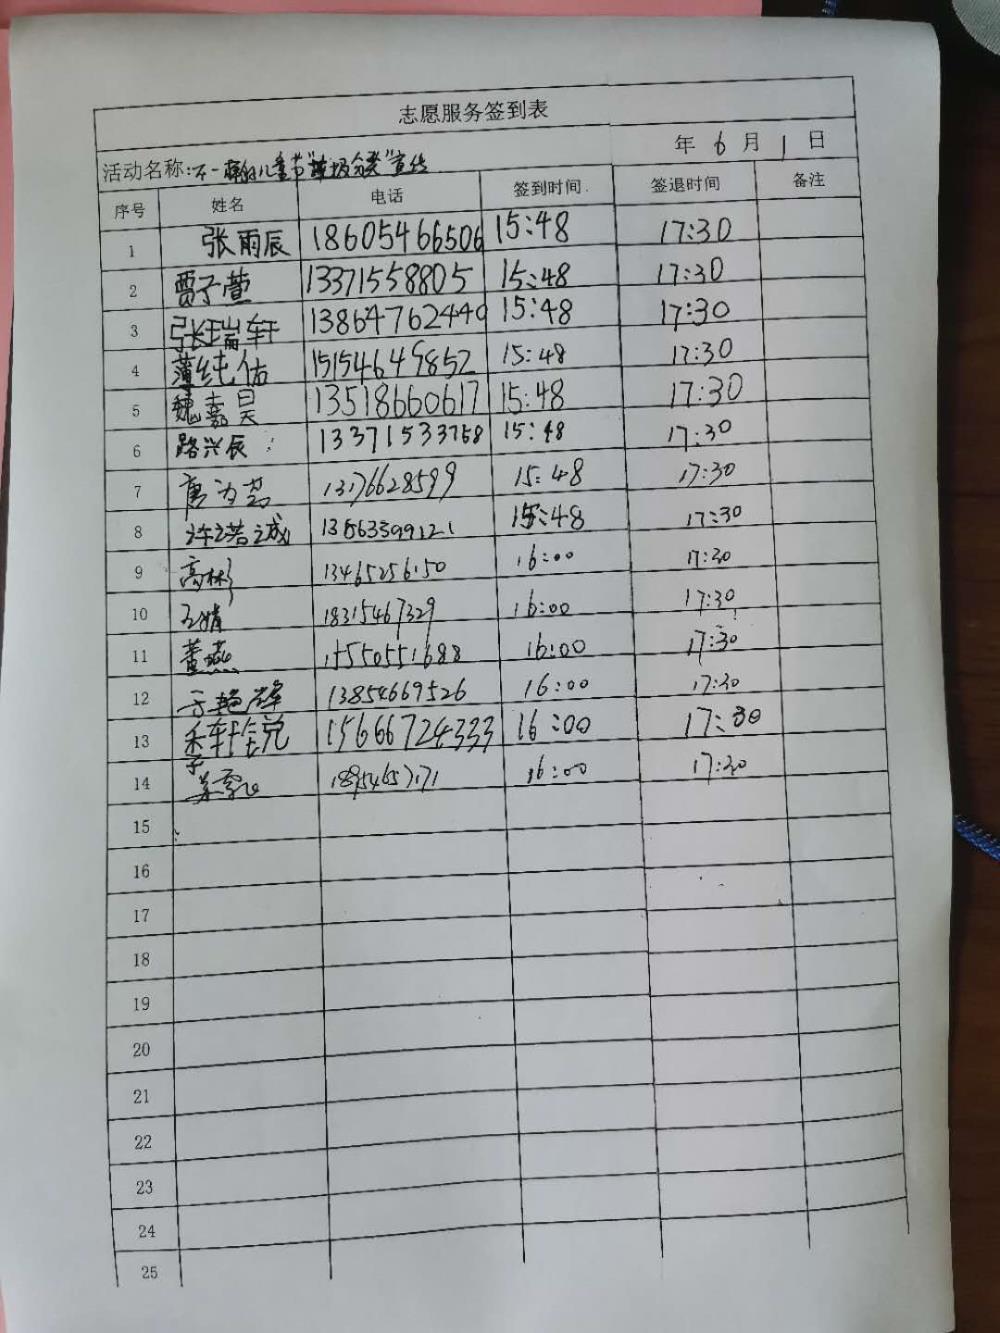 志愿服务签到表
年 6 月 1 日
活动名称:不一 儿童节"垃圾分类"宣传
序号 姓名 电话 签到时间 签退时间 备注
1 张雨辰 18605466506 15:48 17:30
2 贾子萱 13371558805 15:48 17:30
3 张瑞轩 13864762440 15:48 17:30
4 薄纯佑 15154649852 15:48 17:30
5 魏嘉昊 13518660617 15:48 17:30
6 路兴辰 13371533768 15:48 17:30
7 唐为茗 13176628599 15:48 17:30
8 许诺诚 15:48 17:30
9 高彬 13465256150 16:00 17:30
10 18315467329 16:00 17:30
11 董燕 15550551688 16:00 17:30
12 13854669526 16:00 17:30
13 15666724333 16:00 17:30
14 16:00 17:30
15
16
17
18
19
20
21
22
23
24
25